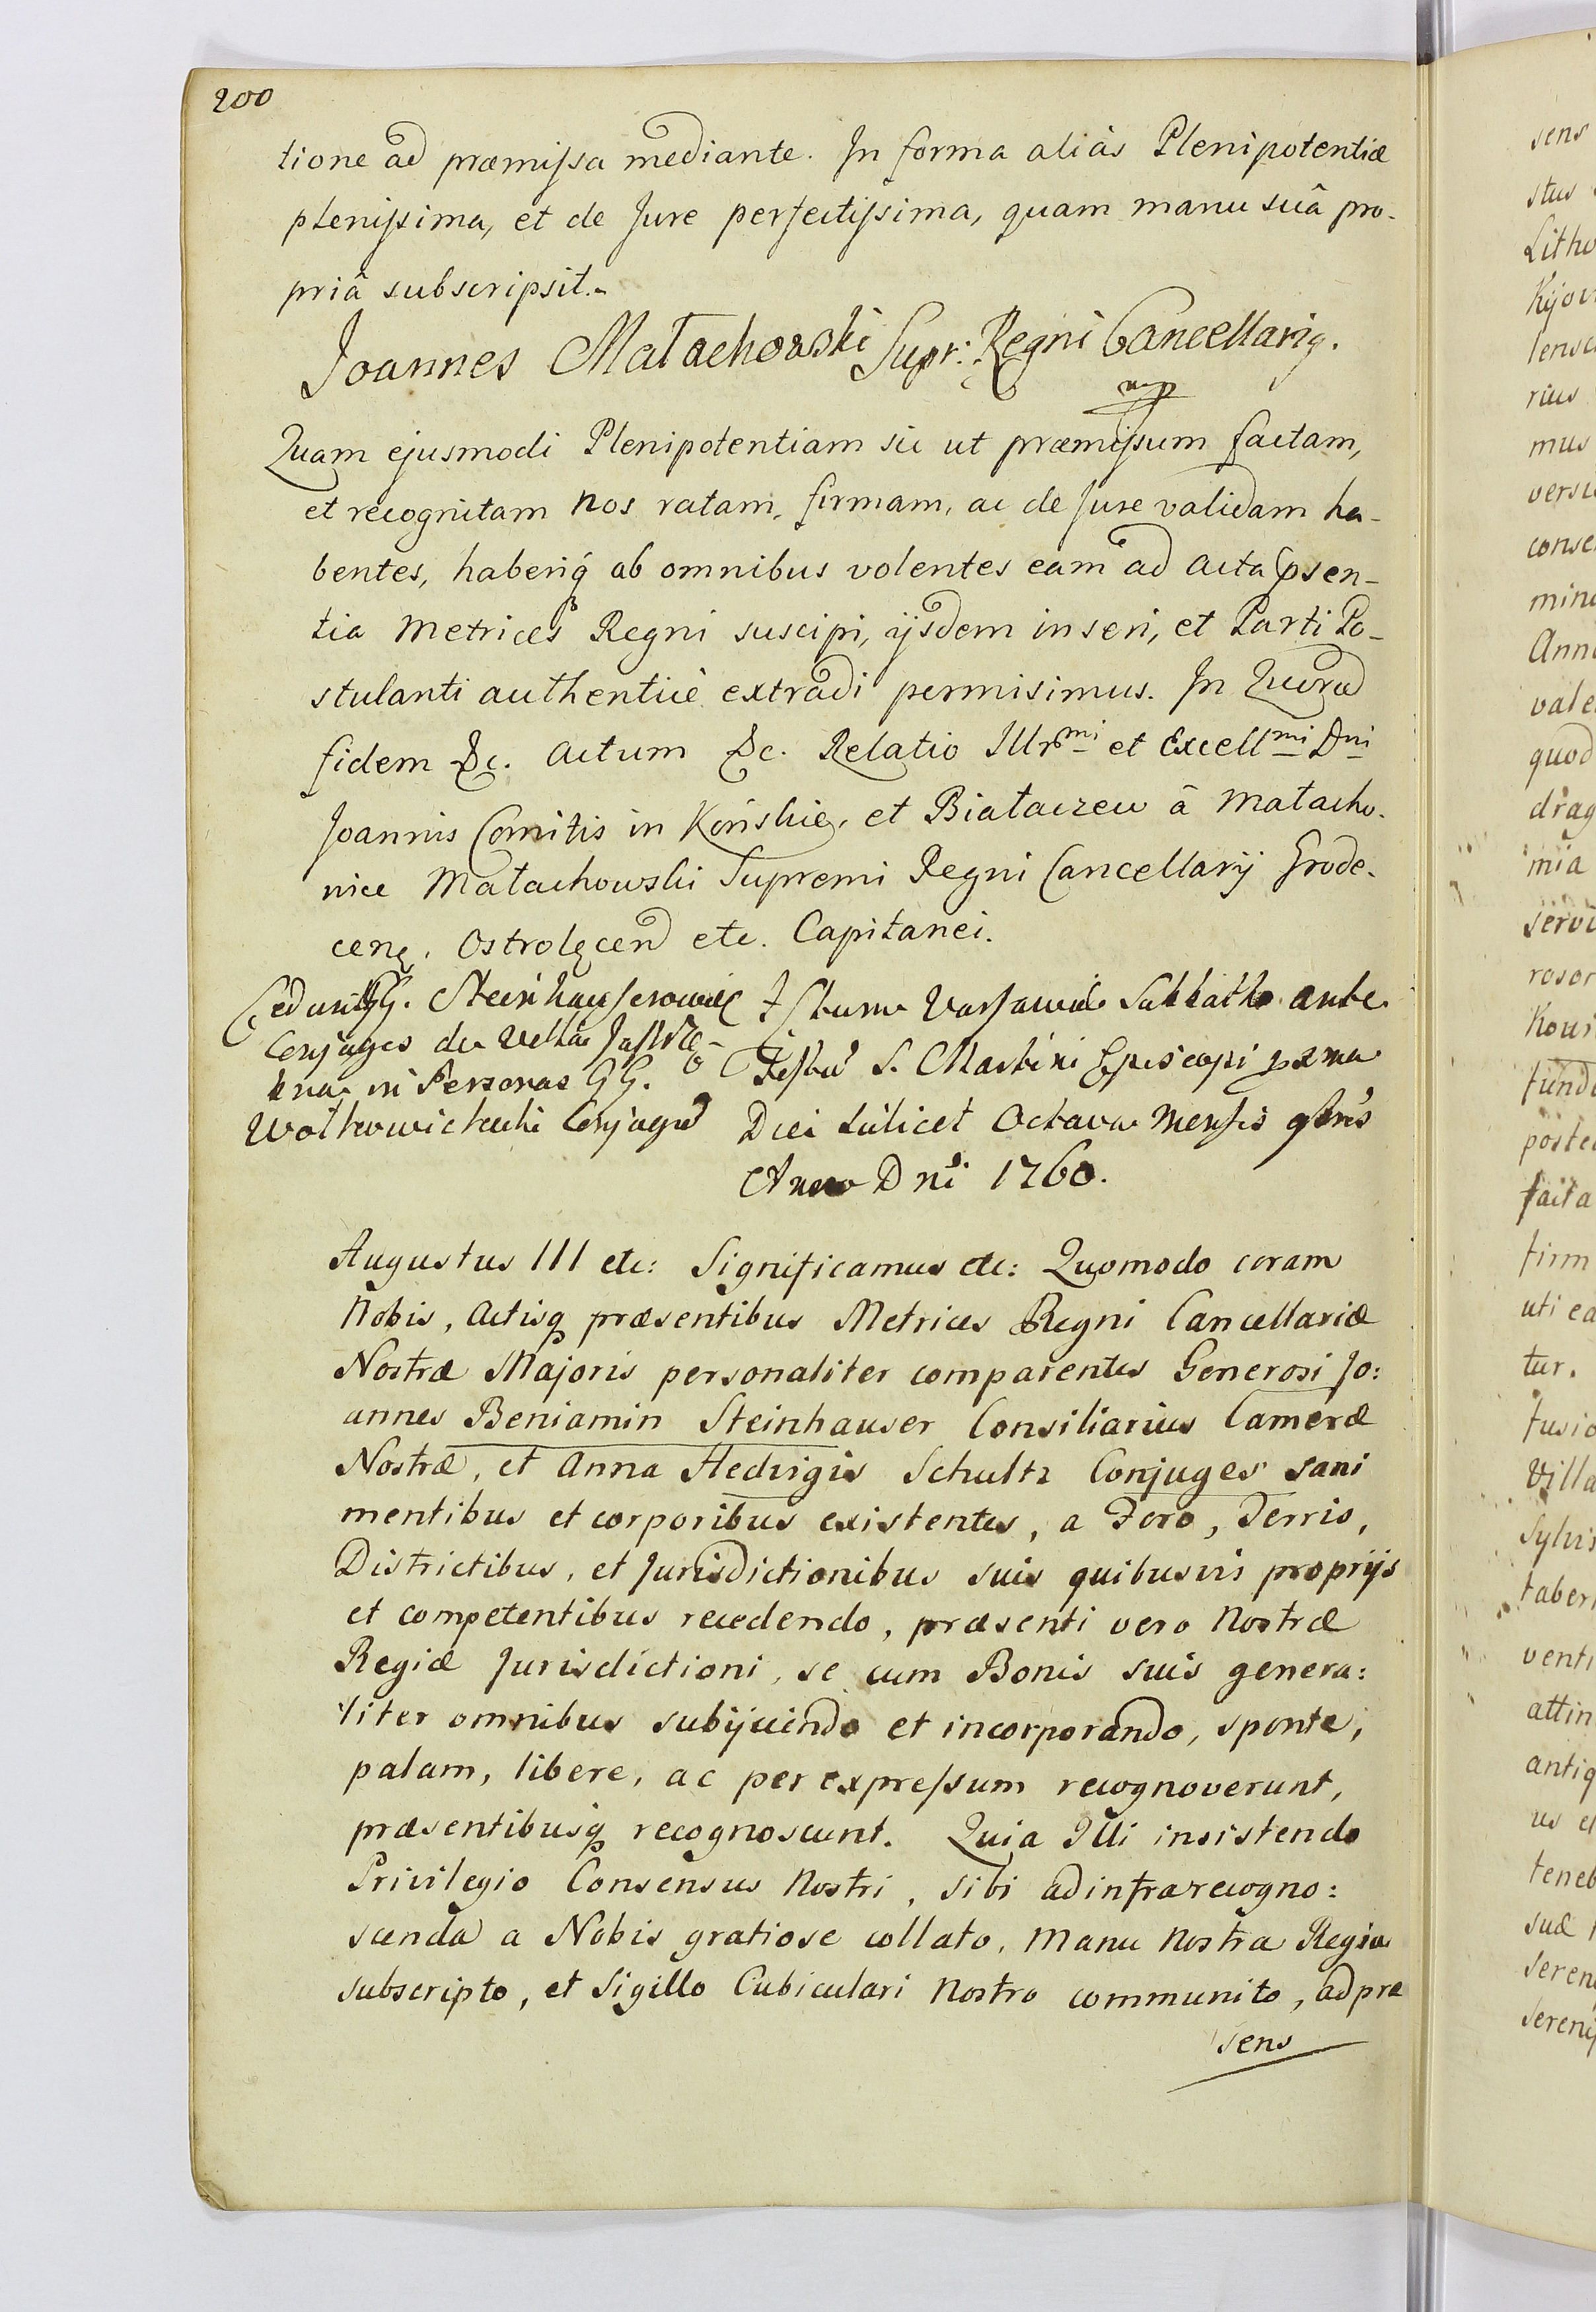 200
tione ad præmissa mediante. In forma aliàs Plenipotentiæ
plenissima, et de Jure perfectissima, quam manu suâ pro-
priâ subscripsit.
Joannes Małachowski Supr: Regni Cancellarig.
mp
Quam ejusmodi Plenipotentiam sic ut præmissum factam,
et recognitam Nos ratam, firmam, ac de Jure validam ha-
bentes, haberiq ab omnibus volentes eam ad Acta psen-
tia Metrices Regni suscipi, ijsdem inseri, et Parti Po-
stulanti authenticè extradi permisimus. In Quorū
fidem &c. Actum &c. Relatio Illrmi et Excellmi Dni
Joannis Comitis in Końskie, et Białaczew â Małacho-
wice Małachowski Supremi Regni Cancellarij Grode-
cenę. Ostrołęcen etc. Capitanei.
Steinhauserowie
Conjuges de Villa
in Personas GG.
Conjugū
Actum Varsaviæ Sabbatho ante
Festū S. Martini Episcopi
Die scilicet Octava Mensis
Anno Dni 1760.
Augustus III etc: Significamus etc: Quomodo coram
Nobis, Actisq præsentibus Metrices Regni Cancellariæ
Nostræ Majoris personaliter comparentes Generosi Jo:
annes Beniamin Steinhauser Consiliarius Cameræ
Nostræ, et Anna Hedvigis Schultz Conjuges sani
mentibus et corporibus existentes, a Foro, Terris,
Districtibus, et Jurisdictionibus suis quibusvis proprijs
et competentibus recedendo, præsenti vero Nostræ
Regiæ Jurisdictioni, se cum Bonis suis genera:
liter omnibus subijciendo et incorporando, sponte,
palam, libere, ac per expressum recognoverunt,
præsentibusq recognoscunt. Quia Illi insistendo
Privilegio Consensus Nostri, sibi ad infrarecogno:
scenda a Nobis gratiose collato, Manu Nostra Regia
subscripto, et Sigillo Cubiculari Nostro communito, ad præ
sens
sens
stus
Litho
Kijov
lensc
rius
mus
versi
conse
mino
Anno
vale
quod
drag
mia
servi
rosor
Kowi
fundi
poste
facta
firm
uti ea
tur.
fusio
Villa
Sylvis
tabern
venti
attin
antiq
us et
teneb
suæ
seren
sereni